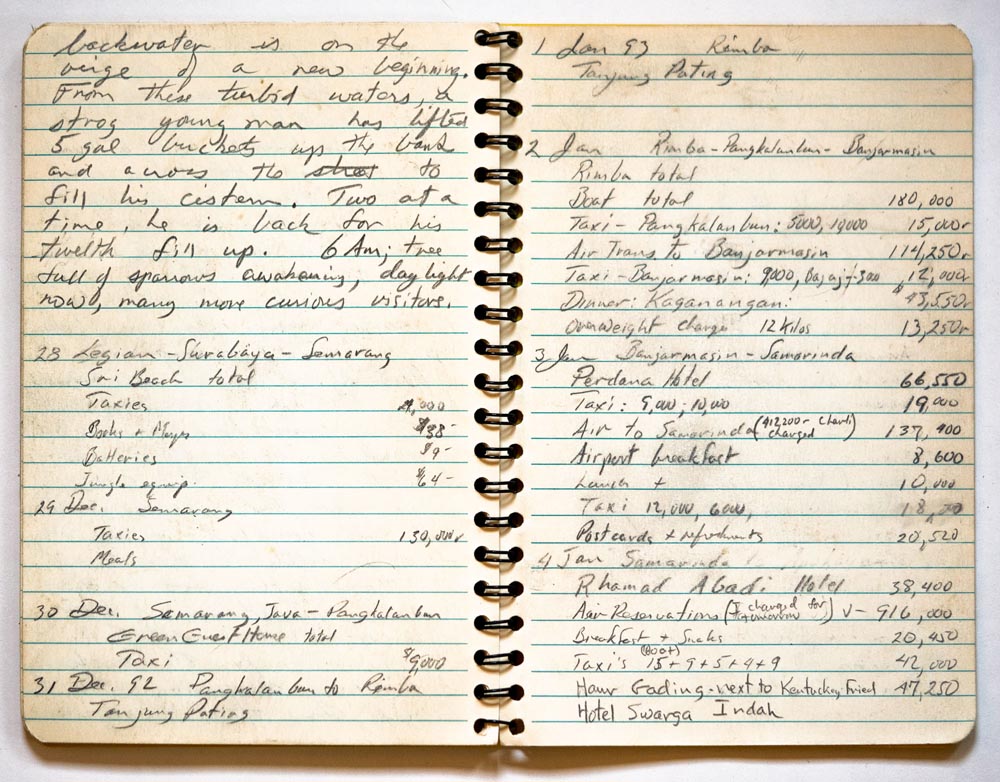 backwater is on the
verge of a new beginning.
From these turbid waters, a
strog young man has lifted
5 gal buckets up the bank
and across the street to
fill his cistern. Two at a
time, he is back for his
twelth fill up. 6 Am; tree
full of sparrows awakening, daylight
now, many more curious visitors.
28 Legian - Surabaya - Semarang
Sri Beach total
Taxies ,000
Books + Maps $38-
Batteries $9-
Jungle equip. $64-
29 Dec. Semarang
Taxies 130,000r
Meals
30 Dec. Semarang, Java - Pangkalanbun
Green Guest House total
Taxi 9,000
31 Dec. 92 Pangkalanbun to Rimba
Tanjung Puting
1 Jan 93 Rimba
Tanjung Puting
2 Jan Rimba - Pangkalanbun - Banjarmasin
Rimba total
Boat total 180,000
Taxi - Pangkalanbun: 5000, 10000 15,000r
Air Trans to Banjarmasin 114,250r
Taxi - Banjarmasin: 9000, Bajaj-300 12,000r
Dinner: Kaganangan: 43,550r
overweight charge 12 kilos 13,250r
3 Jan Banjarmasin - Samarinda
Perdana Hotel 66,550
Taxi: 9,000, 10,000 19,000
Air to Samarinda (412200r charged) 137,400
Airport breakfast 8,600
Lunch + 10,000
Taxi 12,000, 6000,
Postcards + refreshments 20,520
4 Jan Samarinda
Rhamad Abadi Hotel 38,400
Aair Reservations (I charged for tomorrow) V- 916,000
Breakfast + Snaks 20,450
Taxi's (Boat) 15+9+5+4+9 42,000
Haur Gading - next to Kentucky Fried 47,250
Hotel Swarga Indah